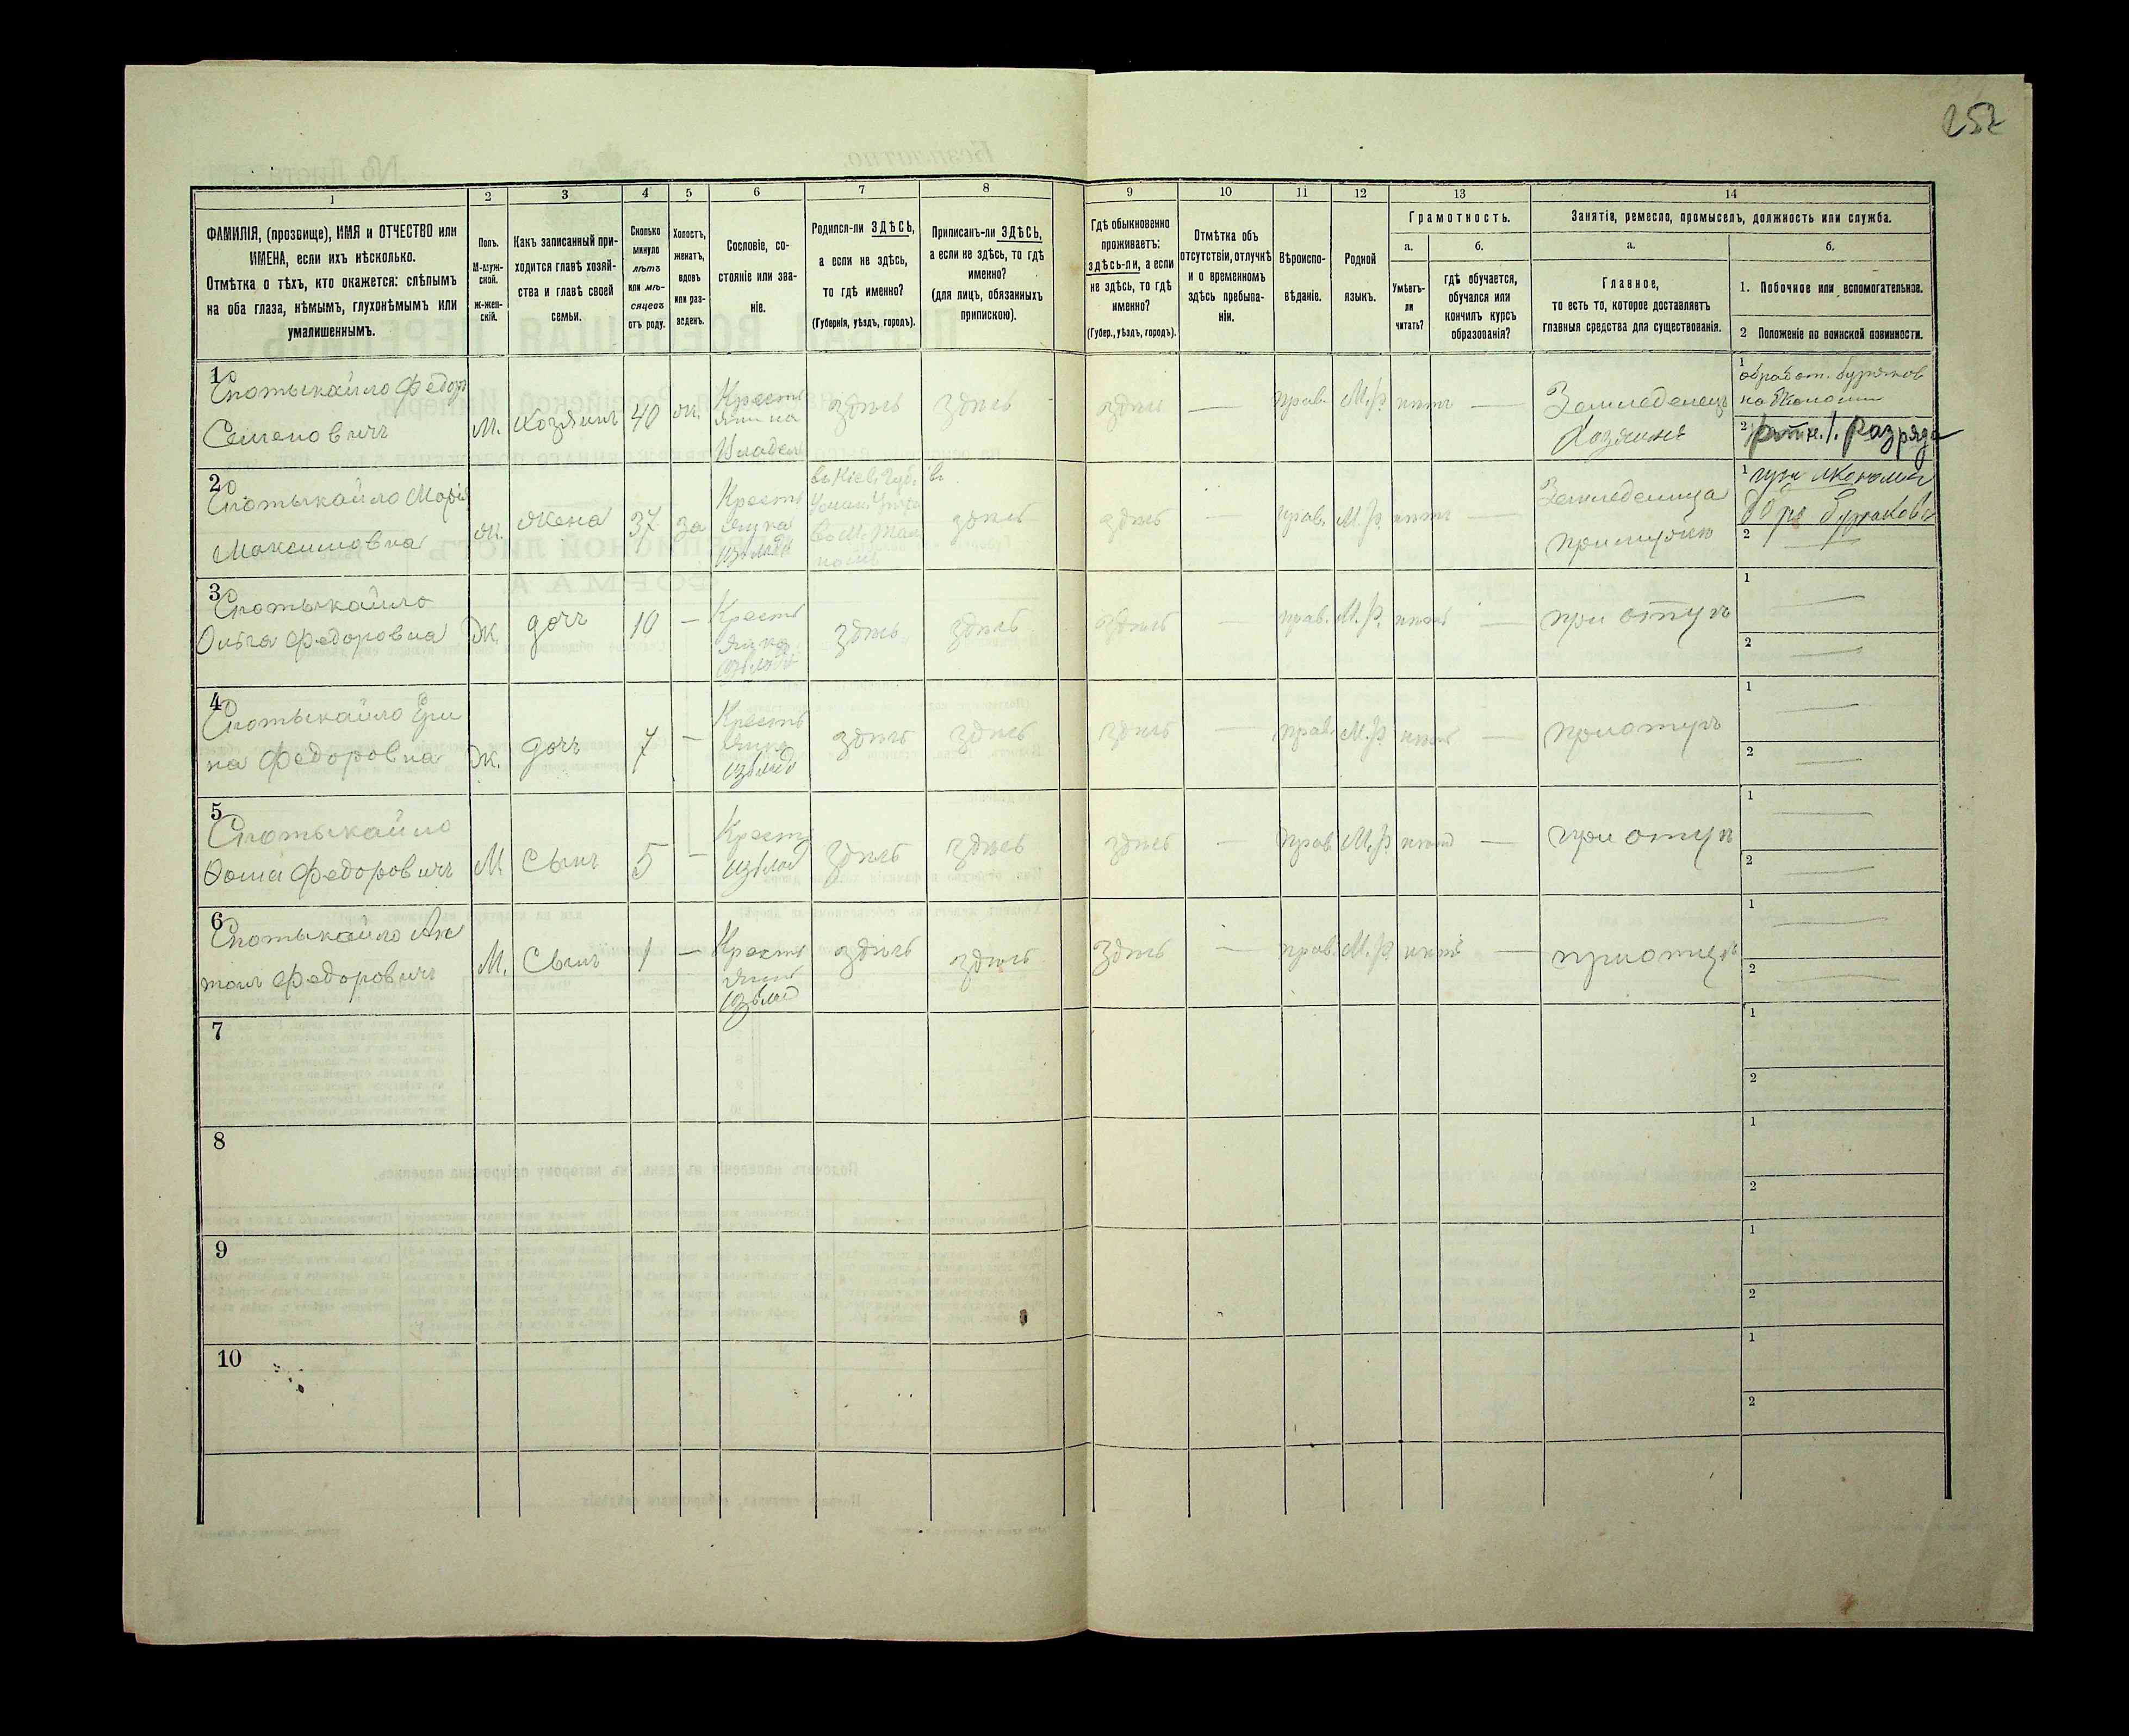 252
1 2 3 4 5 6 7 8 9 10 11 12 13 14
ФАМИЛІЯ, (прозвище), ИМЯ и ОТЧЕСТВО или
ИМЕНА, если ихъ нѣсколько.
Отмѣтка о тѣхъ, кто окажется: слѣпымъ
на оба глаза, нѣмымъ, глухонѣмымъ или
умалишеннымъ.
Полъ.
М-муж-
ской.
Ж-жен-
скій.
Какъ записанный при-
ходится главѣ хозяй-
ства и главѣ своей
семьи.
Сколько
минуло
лѣтъ
или мѣ-
сяцевъ
отъ роду.
Холостъ,
женатъ,
вдовъ
или раз-
веденъ.
Сословіе, со-
стояніе или зва-
ніе.
Родился-ли ЗДѢСЬ,
а если не здѣсь,
то гдѣ именно?
(Губернія, уѣздъ, городъ).
Приписанъ-ли ЗДѢСЬ,
а если не здѣсь, то гдѣ
именно?
(для лицъ, обязанныхъ
припискою).
Гдѣ обыкновенно
проживаетъ:
здѣсь-ли, а если
не здѣсь, то гдѣ
именно?
(Губер., уѣздъ, городъ).
Отмѣтка объ
отсутствіи, отлучкѣ
и о временномъ
здѣсь пребыва-
ніи.
Вѣроиспо-
вѣданіе.
Родной
языкъ.
Грамотность.
а.
Умѣетъ-
ли
читать?
б.
гдѣ обучается,
обучался или
кончилъ курсъ
образованія?
Занятія, ремесло, промыселъ, должность или служба.
а.
Главное,
то есть то, которое доставляетъ
главныя средства для существованія.
б.
1. Побочное или вспомогательное.
2 Положеніе по воинской повинности.
1
Спотыкайло Федоръ
Семеновичъ
М. хозяинъ 40 ж.
Кресть
янина
Владел
здѣсь здѣсь здѣсь — прав. М.Р. нѣтъ —
Земледелецъ
Хозяинъ
1
обработ. буряков
на Экономии
2 ратн. 1. разряда
2
Спотыкайло Марія
Максимовна
ж. жена 37 за
Кресть
янка
изъ влад
въ Кіев. Губ.
здѣсь здѣсь — прав. М.Р. нѣтъ —
Земледелица
при мужѣ
1
2
3
Спотыкайло
Ольга Федоровна
Ж. дочь 10 —
Кресть
янка
изъ влад
здѣсь здѣсь здѣсь — прав. М.Р. нѣтъ — при отцѣ
1
2
4
Спотыкайло Ери
на Федоровна
Ж. дочь 7 —
Кресть
янка
изъ влад
здѣсь здѣсь здѣсь — прав. М.Р. нѣтъ — при отцѣ
1
2
5
Спотыкайло
Фома Федоровичъ
М. Сынъ 5 —
Кресть
изъ влад
здѣсь здѣсь здѣсь — прав. М.Р. нѣтъ — при отцѣ
1
2
6
Спотыкайло Ан
тонъ Федоровичъ
М. Сынъ 1 —
Кресть
янин
изъ влад
здѣсь здѣсь здѣсь — прав. М.Р. нѣтъ — при отцѣ
1
2
7
1
2
8
1
2
9
1
2
10
1
2